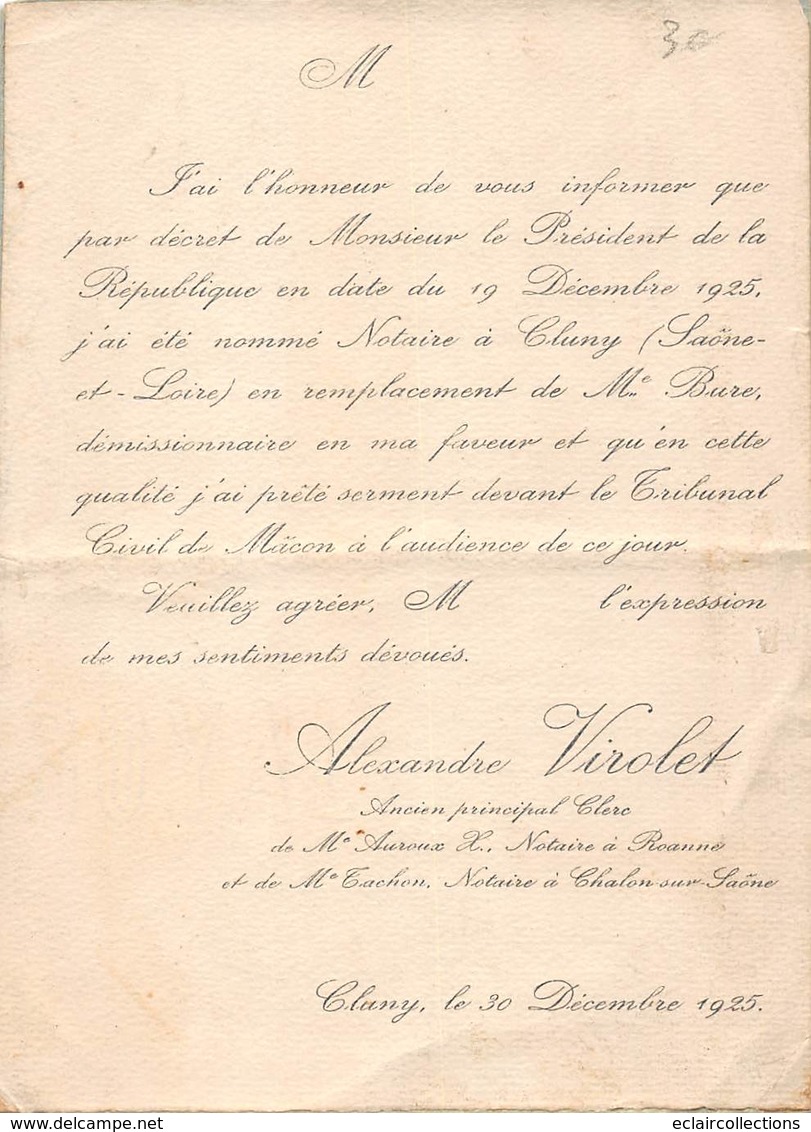 30
M
J'ai l'honneur de vous informer que
par décret de Monsieur le Président de la
République en date du 19 Décembre 1925,
j'ai été nommé Notaire à Cluny (Saône-
et-Loire) en remplacement de Me Bure,
démissionnaire en ma faveur et qu'en cette
qualité j'ai prêté serment devant le Tribunal
Civil de Mâcon à l'audience de ce jour.
Veuillez agréer, M l'expression
de mes sentiments dévoués.
Alexandre Virolet
Ancien principal Clerc
de Me Auroux X., Notaire à Roanne
et de Me Tachon, Notaire à Chalon-sur-Saône
Cluny, le 30 Décembre 1925.
delcampe.net
eclaircollections